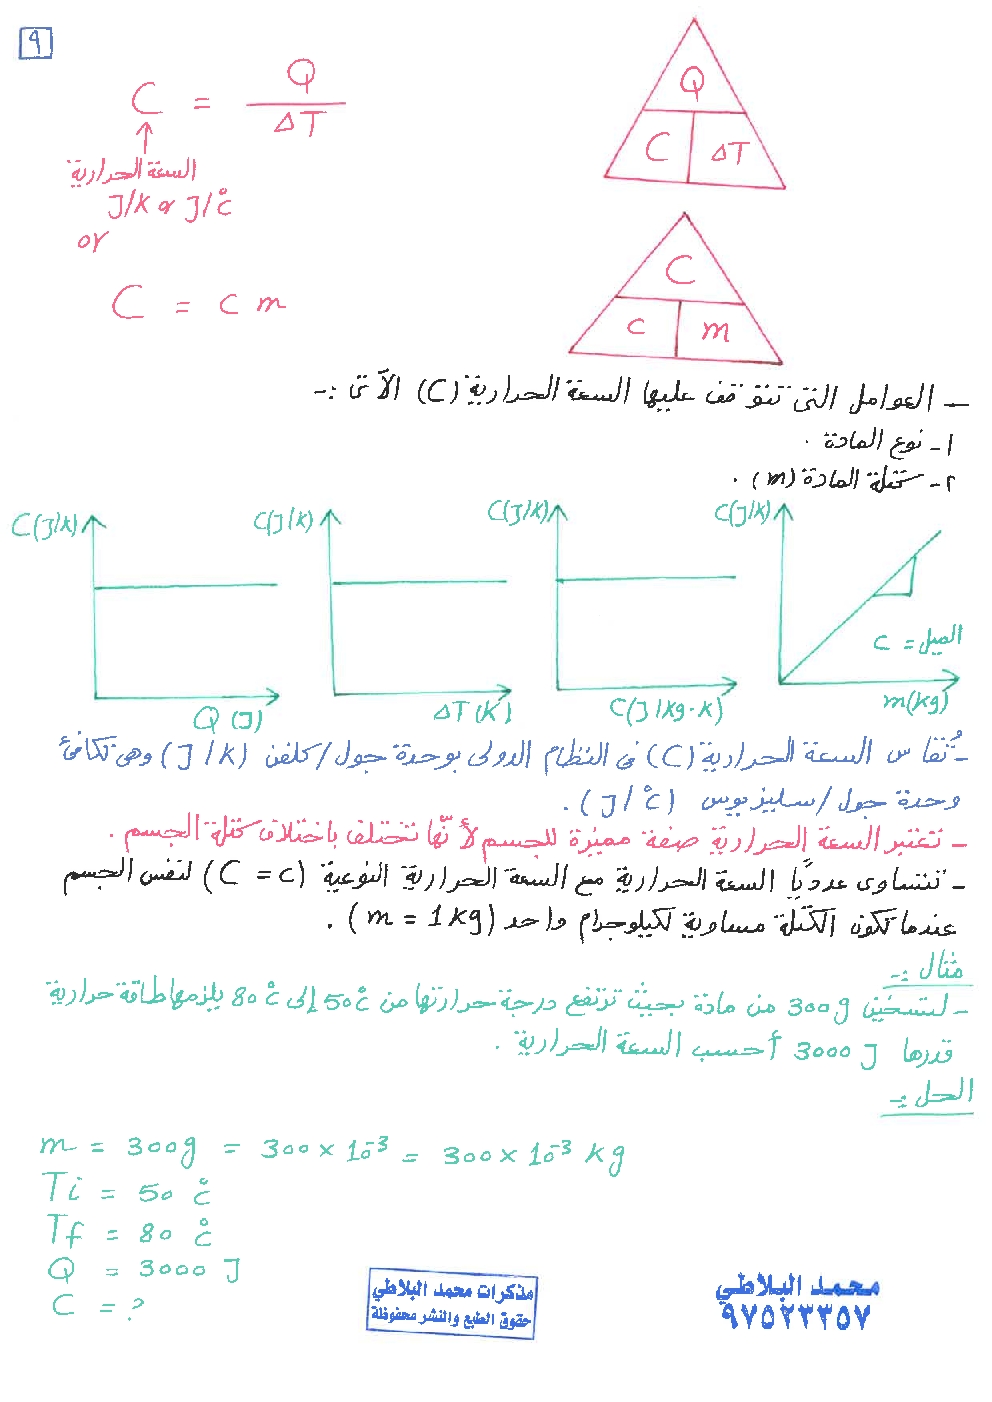 ٩
C = Q / ΔT
السعة الحرارية
J/K or J/°C
or
C = c m
Q
C ΔT
C
c m
– العوامل التى تتوقف عليها السعة الحرارية (C) الآتى :-
١- نوع المادة .
٢- كتلة المادة (m) .
C(J/K)
Q (J)
C(J/K)
ΔT (K)
C(J/K)
C(J/kg.K)
C(J/K)
الميل = c
m(kg)
- تُقاس السعة الحرارية (C) فى النظام الدولى بوحدة جول/كلفن (J/K) وهى تكافئ
وحدة جول/سليزيوس (J/°C) .
- تعتبر السعة الحرارية صفة مميزة للجسم لأنّها تختلف باختلاف كتلة الجسم .
- تتساوى عدديًا السعة الحرارية مع السعة الحرارية النوعية (C = c) لنفس الجسم
عندما تكون الكتلة مساوية لكيلوجرام واحد (m = 1kg) .
مثال :-
- لتسخين 300g من مادة بحيث ترتفع درجة حرارتها من 50°C إلى 80°C يلزمها طاقة حرارية
قدرها 3000 J أحسب السعة الحرارية .
الحل :-
m = 300g = 300 × 10⁻³ = 300 × 10⁻³ kg
Ti = 50 °C
Tf = 80 °C
Q = 3000 J
C = ?
مذكرات محمد البلاطي
حقوق الطبع والنشر محفوظة
محمد البلاطي
٩٧٥٢٣٣٥٧